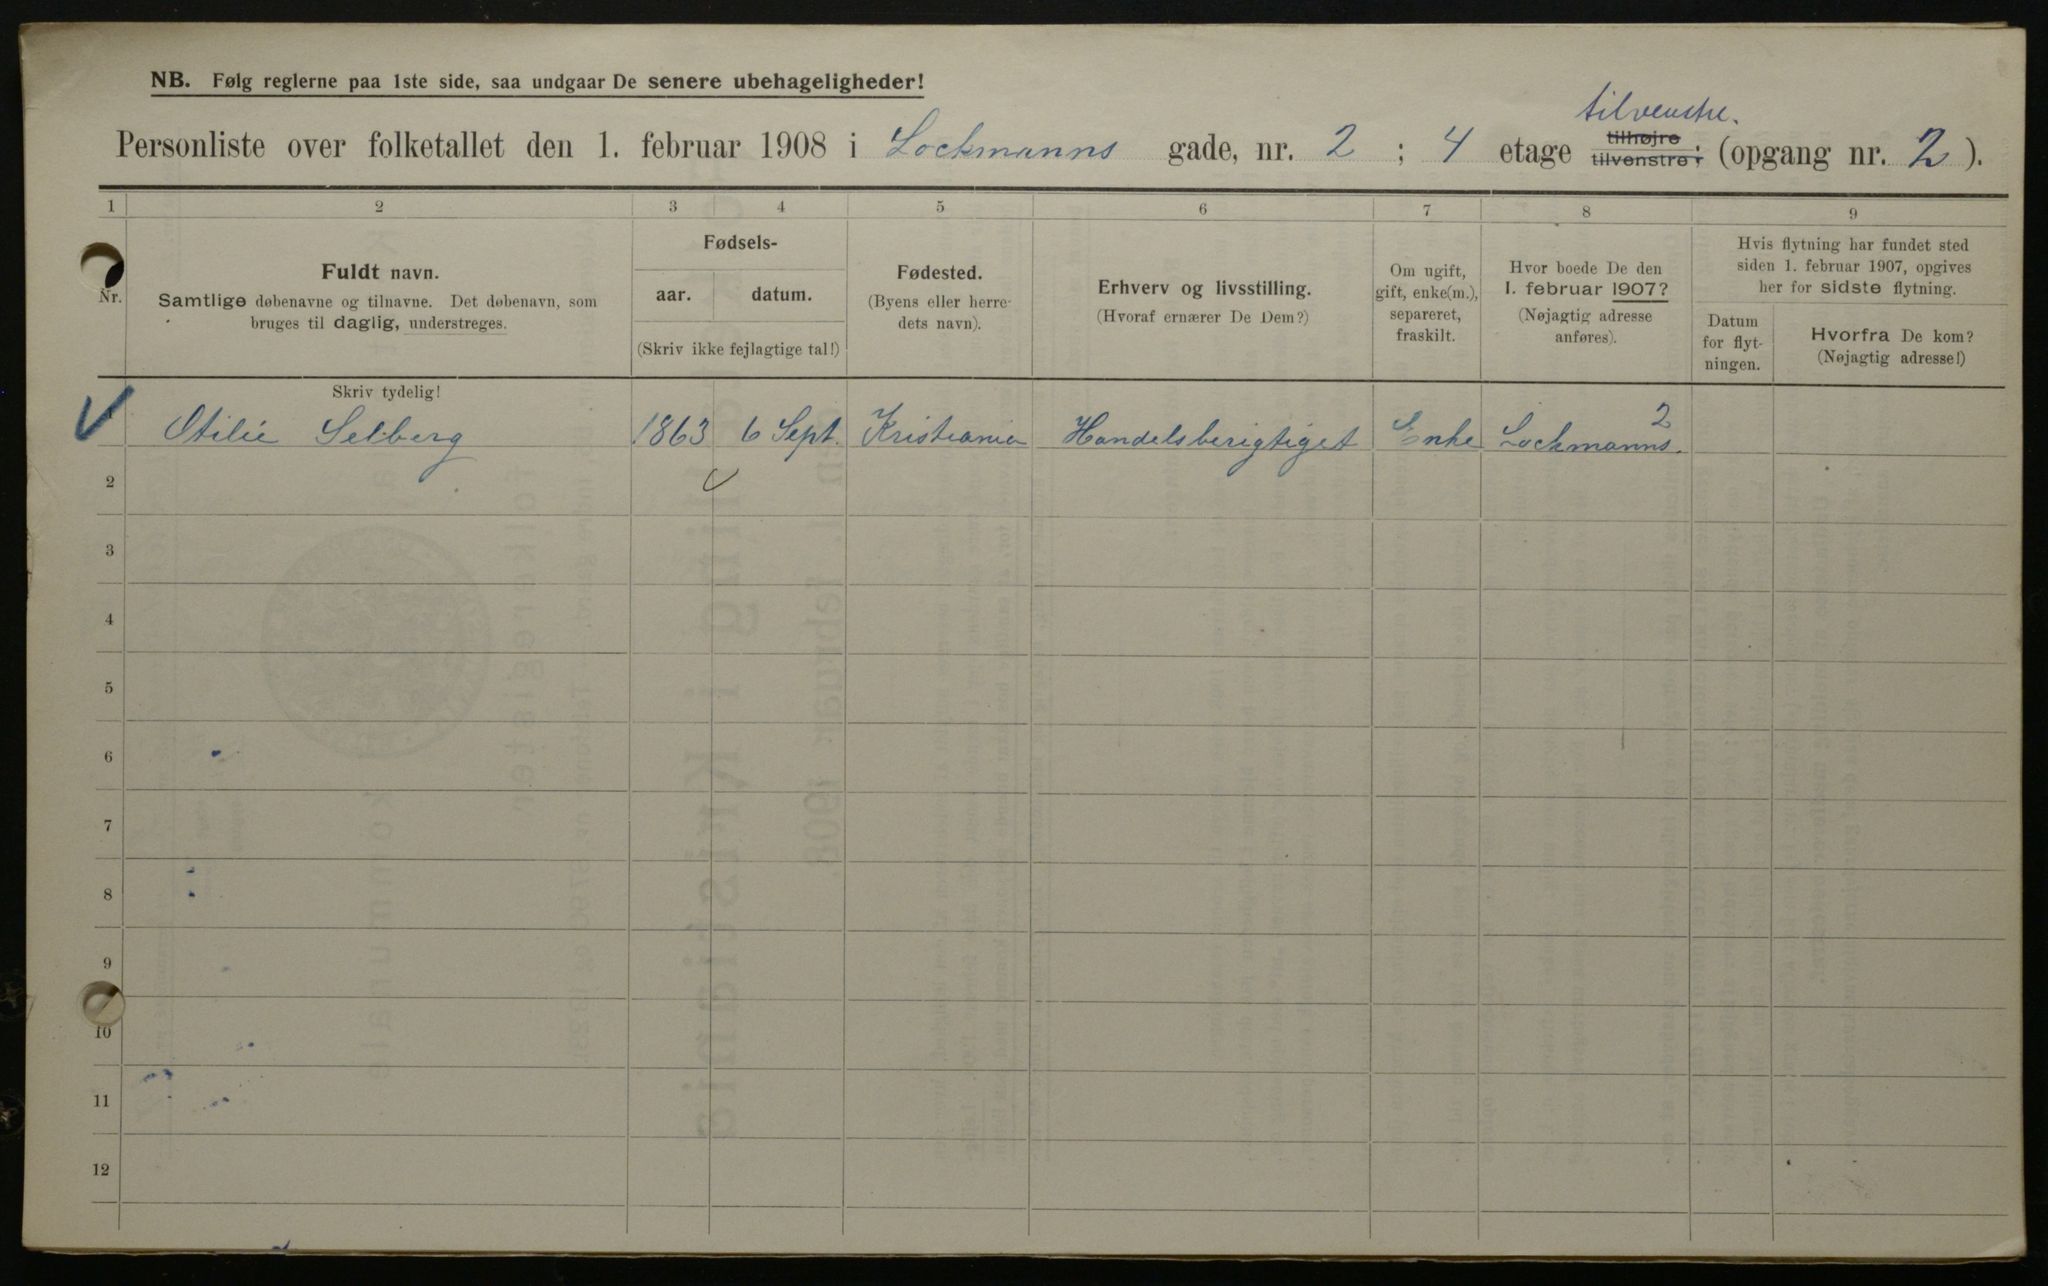 NB. Følg reglerne paa 1ste side, saa undgaar De senere ubehageligheder!
tilvenstre.
Personliste over folketallet den 1. februar 1908 i Lockmanns gade, nr. 2 ; 4 etage tilhøjre tilvenstre; (opgang nr. 2 ).
1 2 3 4 5 6 7 8 9
Nr.
Fuldt navn.
Samtlige døbenavne og tilnavne. Det døbenavn, som
bruges til daglig, understreges.
Skriv tydelig!
Fødsels-
aar. datum.
(Skriv ikke fejlagtige tal!)
Fødested.
(Byens eller herre-
dets navn).
Erhverv og livsstilling.
(Hvoraf ernærer De Dem?)
Om ugift,
gift, enke(m.),
separeret,
fraskilt.
Hvor boede De den
1. februar 1907?
(Nøjagtig adresse
anføres).
Hvis flytning har fundet sted
siden 1. februar 1907, opgives
her for sidste flytning.
Datum
for flyt-
ningen.
Hvorfra De kom?
(Nøjagtig adresse!)
1 Otilie Selberg 1863 6 Sept. Kristiania Handelsberigtiget Enke Lockmanns. 2
2
3
4
5
6
7
8
9
10
11
12